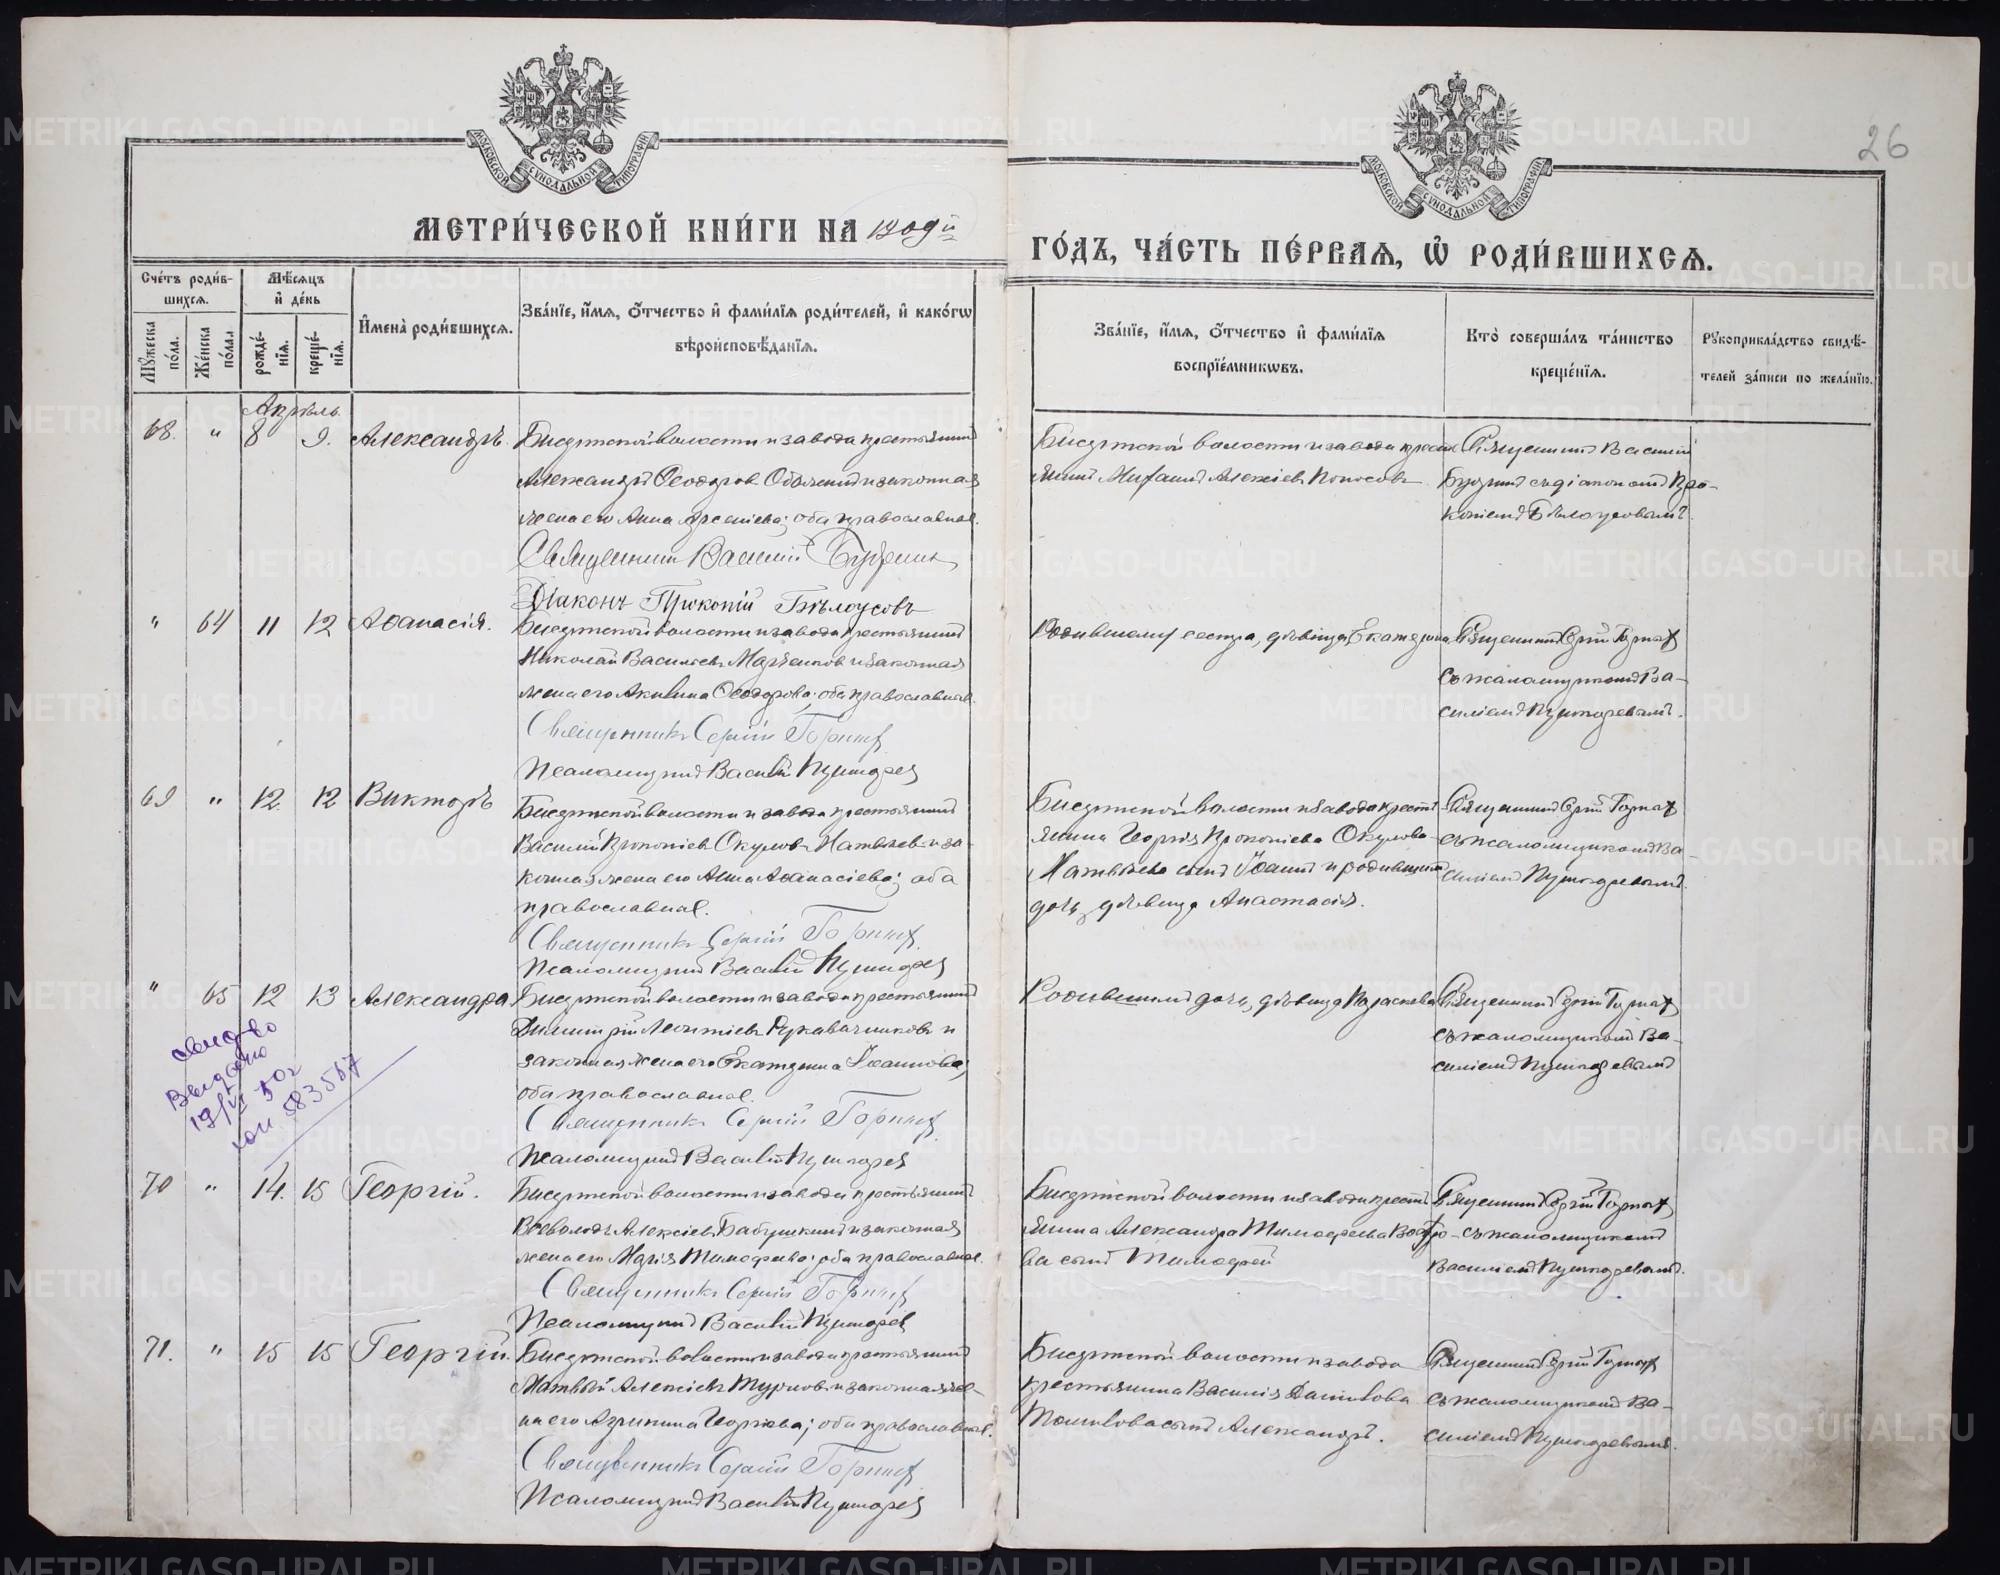 26
МОСКОВСКОЙ СѴНОДАЛЬНОЙ ТИПОГРАФІИ
МОСКОВСКОЙ СѴНОДАЛЬНОЙ ТИПОГРАФІИ
МЕТРИ́ЧЕСКОЙ КНИ́ГИ НА 1909й
ГО́ДЪ, ЧА́СТЬ ПЕ́РВАѦ, Ѡ҆ РОДИ́ВШИХСѦ.
Сче́тъ роди́в-
шихсѧ.
Мꙋ́жеска по́ла.
Же́нска по́ла.
Мѣ́сѧцъ
и҆ де́нь
рожде́нїѧ.
креще́нїѧ.
И҆мена̀ роди́вшихсѧ.
Зва́нїе, и҆́мѧ, ѻ҆́тчество и҆ фами́лїѧ роди́телей, и҆ како́гѡ
вѣроисповѣ́данїѧ.
Зва́нїе, и҆́мѧ, ѻ҆́тчество и҆ фами́лїѧ
воспрїе́мникѡвъ.
Кто̀ соверша́лъ та́инство
креще́нїѧ.
Рꙋкоприкла́дство свидѣ́-
телей за́писи по жела́нїю.
Апрѣль.
68. " 8 9. Александръ.
Бисертской волости и завода крестьянинъ
Александръ Ѳеодоров и законная
жена его Анна Арсеніева; оба православные.
Священник Василий Бурдин
Діаконъ Прокопій Бѣлоусовъ
Бисертской волости и завода кресть-
янинъ Михаилъ Алексіевъ Копосовъ
Священникъ Василій
съ діакономъ Про-
копіемъ Бѣлоусовымъ.
" 64 11 12 Аѳанасія.
Бисертской волости и завода крестьянинъ
Николай Васильевъ и законная
жена его Акилина Ѳеодорова; оба православные.
Священникъ Сергій Горных
Псаломщикъ Василій Пушкарев
сестра, дѣвица Екатерина
Священникъ Сергій Горныхъ
съ псаломщикомъ Ва-
силіемъ Пушкаревымъ.
69 " 12. 12 Викторъ
Бисертской волости и завода крестьянинъ
Василій Прокопіевъ Окуловъ и за-
конная жена его Анна Аѳанасіева; оба
православные.
Священникъ Сергій Горных
Псаломщикъ Василій Пушкарев
Бисертской волости и завода кресть-
янина Георгія Прокопіева Окулова-
сынъ Іоаннъ и родившаго
дочь, дѣвица Анастасія.
Священникъ Сергій Горныхъ
съ псаломщикомъ Ва-
силіемъ Пушкаревымъ.
" 65 12 13 Александра
Бисертской волости и завода крестьянинъ
Димитрій Леонтіевъ Рукавичниковъ и
законная жена его Екатерина Іоаннова;
оба православные.
Священникъ Сергій Горных
Псаломщикъ Василій Пушкарев
дочь, дѣвица Параскева
Священникъ Сергій Горныхъ
съ псаломщикомъ Ва-
силіемъ Пушкаревымъ
свид-во
выдано
19/VI 50г
583567
70 " 14. 15 Георгій.
Бисертской волости и завода крестьянинъ
Всеволодъ Алексіевъ Бабушкинъ и законная
жена его Марія Тимофеева; оба православные.
Священникъ Сергій Горных
Псаломщикъ Василій Пушкарев
Бисертской волости и завода кресть-
янина Александра Тимофеева
ва сынъ Тимофей
Священникъ Сергій Горныхъ
съ псаломщикомъ
Василіемъ Пушкаревымъ.
71. " 15 15 Георгій.
Бисертской волости и завода крестьянинъ
Матвѣй Алексіевъ и законная же-
на его Агрипина Георгіева; оба православные.
Священникъ Сергій Горных
Псаломщикъ Василій Пушкарев
Бисертской волости и завода
крестьянина Василія Данилова
сынъ Александръ.
Священникъ Сергій Горныхъ
съ псаломщикомъ Ва-
силіемъ Пушкаревымъ.
METRIKI.GASO-URAL.RU